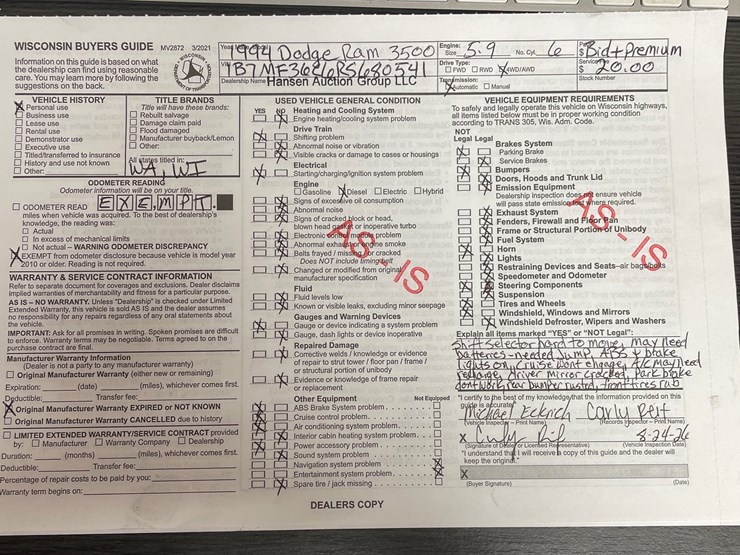 WISCONSIN BUYERS GUIDE MV2872 3/2021
Information on this guide is based on what
the dealership can find using reasonable
care. You may learn more by following the
suggestions on the back.
Year 1994 Dodge Ram 3500
Engine: Size 5.9 No. Cyl. 6
Bid + Premium
$ 20.00
Drive Type:
FWD RWD 4WD/AWD
Transmission:
Automatic Manual
Stock Number
Dealership Name Hansen Auction Group LLC
VEHICLE HISTORY
Personal use
Business use
Lease use
Rental use
Demonstrator use
Executive use
Titled/transferred to insurance
History and use not known
Other:
TITLE BRANDS
Title will have these brands:
Rebuilt salvage
Damage claim paid
Flood damaged
Manufacturer buyback/Lemon
Other:
All states titled in:
WA, WI
ODOMETER READING
Odometer information will be on your title.
ODOMETER READ EXEMPT
miles when vehicle was acquired. To the best of dealership's
knowledge, the reading was:
Actual
In excess of mechanical limits
Not actual – WARNING ODOMETER DISCREPANCY
EXEMPT from odometer disclosure because vehicle is model year
2010 or older. Reading is not required.
WARRANTY & SERVICE CONTRACT INFORMATION
Refer to separate document for coverages and exclusions. Dealer disclaims
implied warranties of merchantability and fitness for a particular purpose.
AS IS – NO WARRANTY. Unless "Dealership" is checked under Limited
Extended Warranty, this vehicle is sold AS IS and the dealer assumes
no responsibility for any repairs regardless of any oral statements about
the vehicle.
IMPORTANT: Ask for all promises in writing. Spoken promises are difficult
to enforce. Warranty terms may be negotiable. Terms agreed to on the
purchase contract are final.
Manufacturer Warranty Information
(Dealer is not a party to any manufacturer warranty)
Original Manufacturer Warranty (either new or remaining)
Expiration: (date) (miles), whichever comes first.
Deductible: Transfer fee:
Original Manufacturer Warranty EXPIRED or NOT KNOWN
Original Manufacturer Warranty CANCELLED due to history
LIMITED EXTENDED WARRANTY/SERVICE CONTRACT provided
by: Manufacturer Warranty Company Dealership
Duration: (months) (miles), whichever comes first.
Deductible: Transfer fee:
Percentage of repair costs to be paid by you:
Warranty term begins on:
USED VEHICLE GENERAL CONDITION
YES NO
Heating and Cooling System
Engine heating/cooling system problem
Drive Train
Shifting problem
Abnormal noise or vibration
Visible cracks or damage to cases or housings
Electrical
Starting/charging/ignition system problem
Engine
Gasoline Diesel Electric Hybrid
Signs of excessive oil consumption
Abnormal noise
Signs of cracked block or head,
blown head gasket, inoperative turbo
Electronic problem
Abnormal exhaust smoke
Belts frayed / missing or cracked
Does NOT include timing
Changed or modified from original
manufacturer specification
Fluid
Fluid levels low
Known or visible leaks, excluding minor seepage
Gauges and Warning Devices
Gauge or device indicating a system problem
Gauge, dash lights or device inoperative
Repaired Damage
Corrective welds / knowledge or evidence
of repair to strut tower / floor pan / frame /
or structural portion of unibody
Evidence or knowledge of frame repair
or replacement
Other Equipment Not Equipped
ABS Brake System problem
Cruise control problem
Air conditioning system problem
Interior cabin heating system problem
Power accessory problem
Sound system problem
Navigation system problem
Entertainment system problem
Spare tire / jack missing
AS - IS
VEHICLE EQUIPMENT REQUIREMENTS
To safely and legally operate this vehicle on Wisconsin highways,
all items listed below must be in proper working condition
according to TRANS 305, Wis. Adm. Code.
NOT
Legal Legal
Brakes System
Parking Brake
Service Brakes
Bumpers
Doors, Hoods and Trunk Lid
Emission Equipment
Dealership Inspection does not ensure vehicle
will pass state emission if required.
Exhaust System
Fenders, Firewall and Floor Pan
Frame or Structural Portion of Unibody
Fuel System
Horn
Lights
Restraining Devices and Seats–air bags/belts
Speedometer and Odometer
Steering Components
Suspension
Tires and Wheels
Windshield, Windows and Mirrors
Windshield Defroster, Wipers and Washers
AS - IS
Explain all items marked "YES" or "NOT Legal":
Shift selector hard to move, may need
batteries - needed jump, ABS & brake
lights on, cruise wont engage, A/C may need
recharge, driver mirror cracked, park brake
dont work, rear bumper rusted, front tires rub
"I certify to the best of my knowledge that the information provided on this
guide is accurate"
Michael Eckrich
(Vehicle Inspector – Print Name) (Records Inspector – Print Name)
X 8-24-26
(Signature of Dealer or Licensed Representative) (Vehicle Inspection Date)
"I understand that I will receive a copy of this guide and the dealer will
keep the original."
X
(Buyer Signature) (Date)
DEALERS COPY